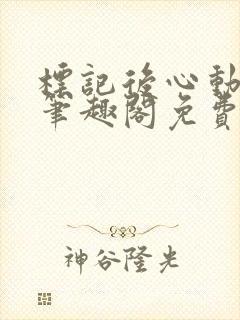 標記後心動
筆趣閣免費
神谷隆光